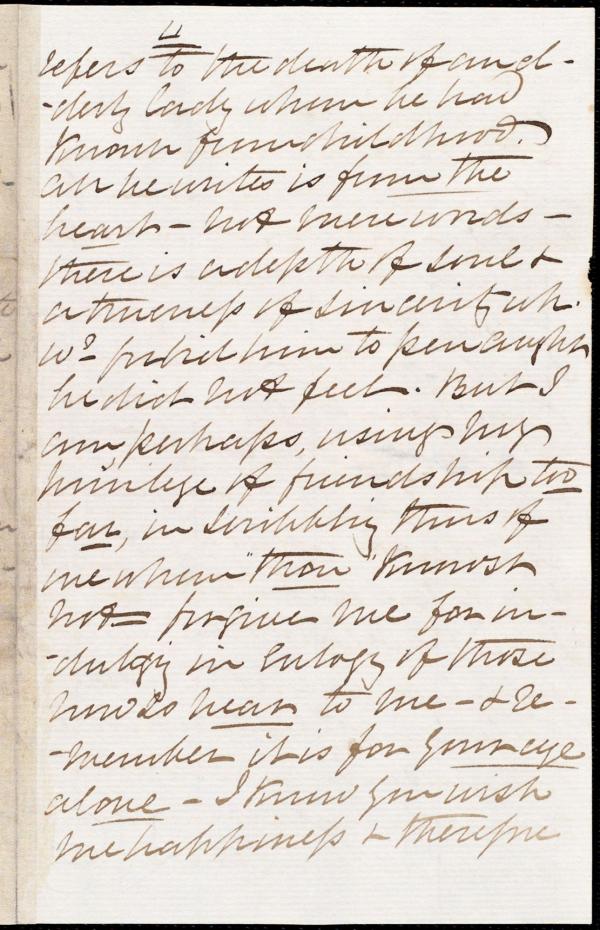 4
refers to the death of an el-
-derly lady whom he had
known from childhood.)
All he writes is from the
heart - not mere words -
there is a depth of soul &
a trueness of sincerity wh.
wd forbid him to pen aught
he did not feel. But I
am perhaps, using my
privilege of friendship too
far, in scribbling thus of
one whom "thou" knowst
not = forgive me for in-
-dulging in eulogy of those
now so near to me - & re-
-member it is for your eye
alone - I know you wish
me happiness & therefore